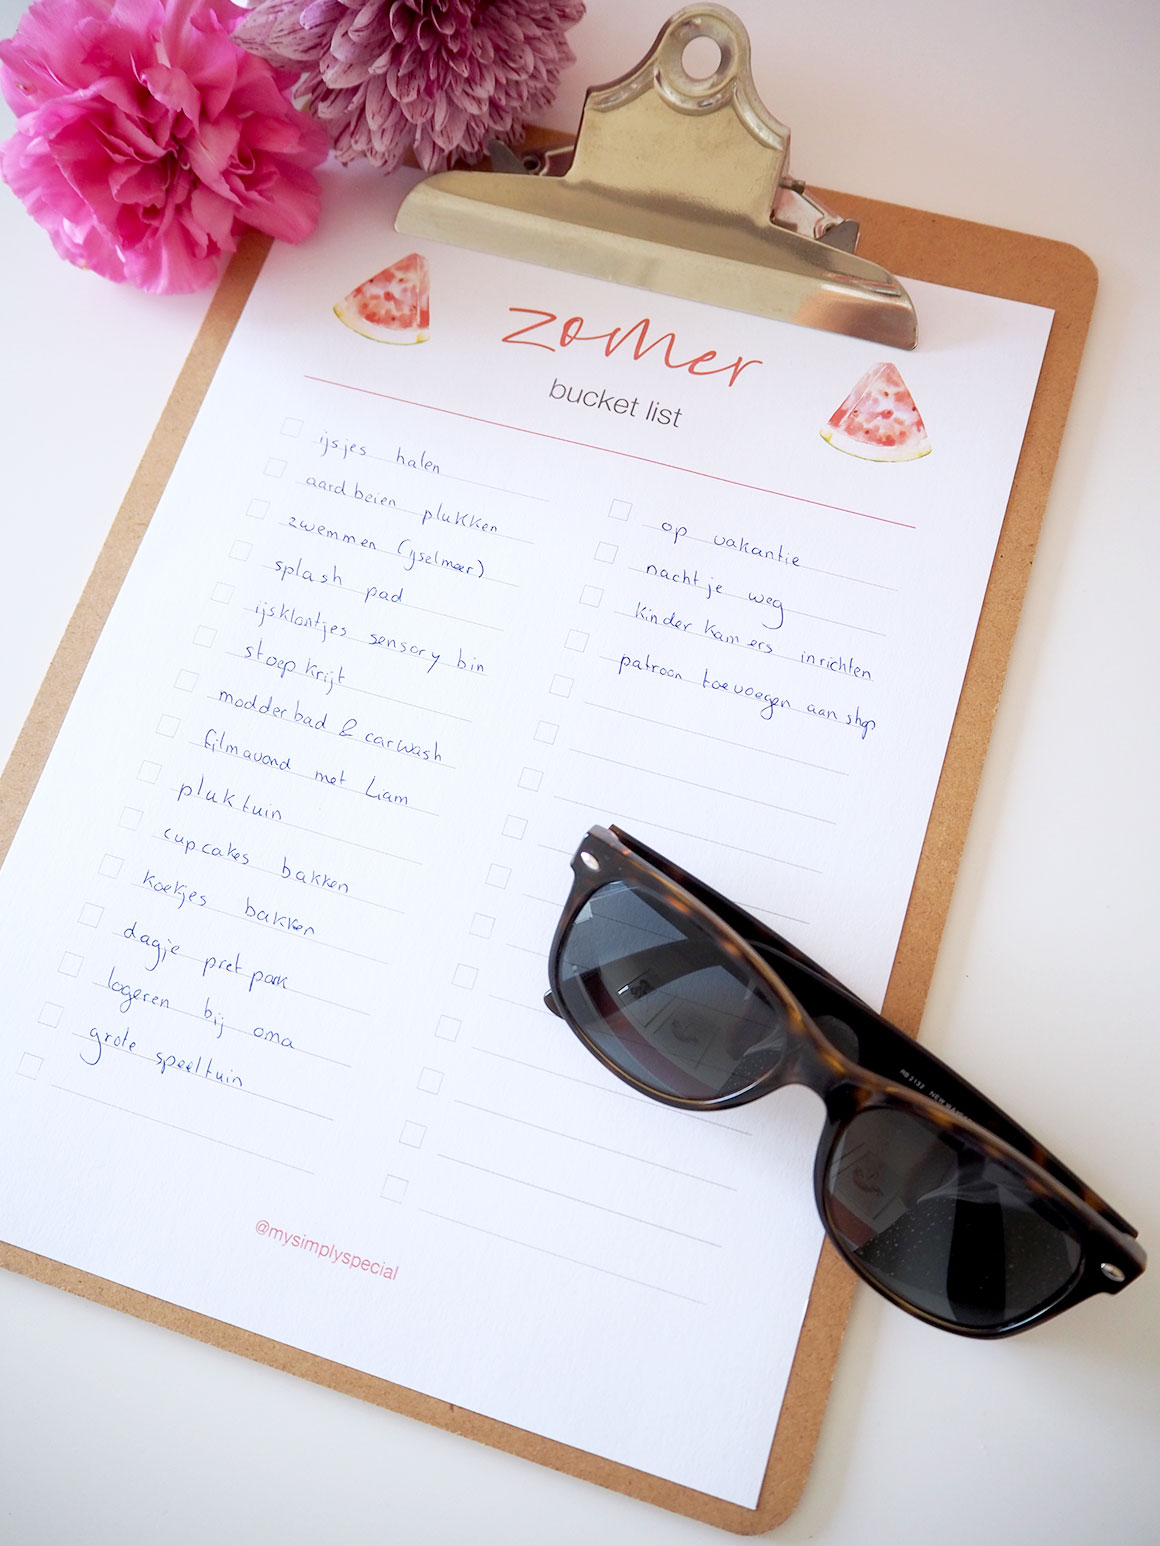 zomer
bucket list
ijsjes halen
aardbeien plukken
zwemmen (ijselmeer)
splash pad
ijsklontjes sensory bin
stoepkrijt
modderbad & carwash
filmavond met Liam
pluktuin
cupcakes bakken
koekjes bakken
dagje pretpark
logeren bij oma
grote speeltuin
op vakantie
nachtje weg
kinderkamers inrichten
patroon toevoegen aan shop
@mysimplyspecial
RB 2132 NEW